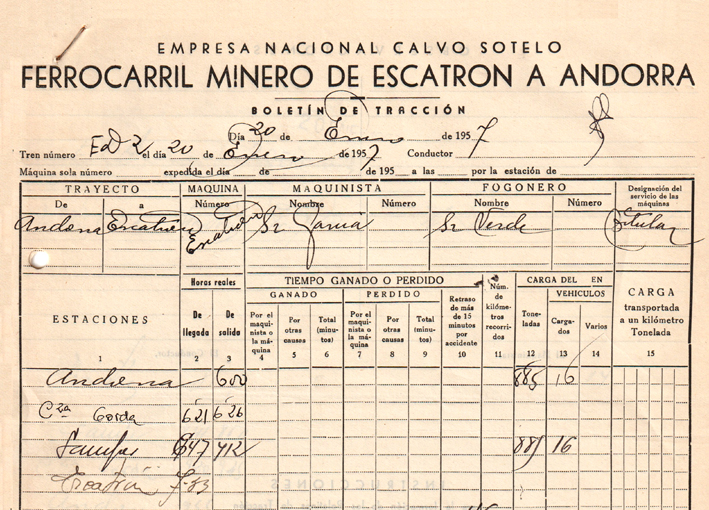 EMPRESA NACIONAL CALVO SOTELO
FERROCARRIL MINERO DE ESCATRON A ANDORRA
BOLETÍN DE TRACCIÓN
Día 20 de Enero de 1957
Tren número Ed 2 el día 20 de Enero de 1957 Conductor
Máquina sola número expedida el día de de 195 a las por la estación de
TRAYECTO MAQUINA MAQUINISTA FOGONERO Designación del servicio de las máquinas
De a Número Nombre Número Nombre Número
Andorra Escatrón Escatrón Sr García Sr Verde Titular
Horas reales TIEMPO GANADO O PERDIDO Núm. de kilómetros recorridos CARGA DEL EN VEHICULOS CARGA transportada a un kilómetro Tonelada
ESTACIONES De llegada De salida GANADO PERDIDO Retraso de más de 15 minutos por accidente Toneladas Cargados Varios
Por el maquinista o la máquina Por otras causas Total (minutos) Por el maquinista o la máquina Por otras causas Total (minutos)
1 2 3 4 5 6 7 8 9 10 11 12 13 14 15
Andorra 600 885 16
Cza Gorda 621 626
Samper 647 712 885 16
Escatrón
INSTRUCCIONES